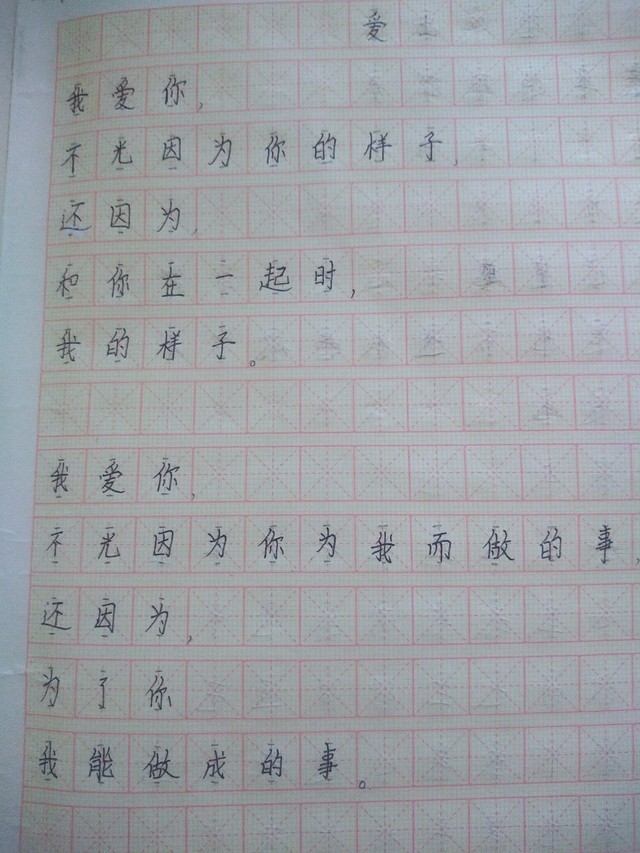 爱
我爱你，
不光因为你的样子，
还因为，
和你在一起时，
我的样子。
我爱你，
不光因为你为我而做的事，
还因为，
为了你
我能做成的事。